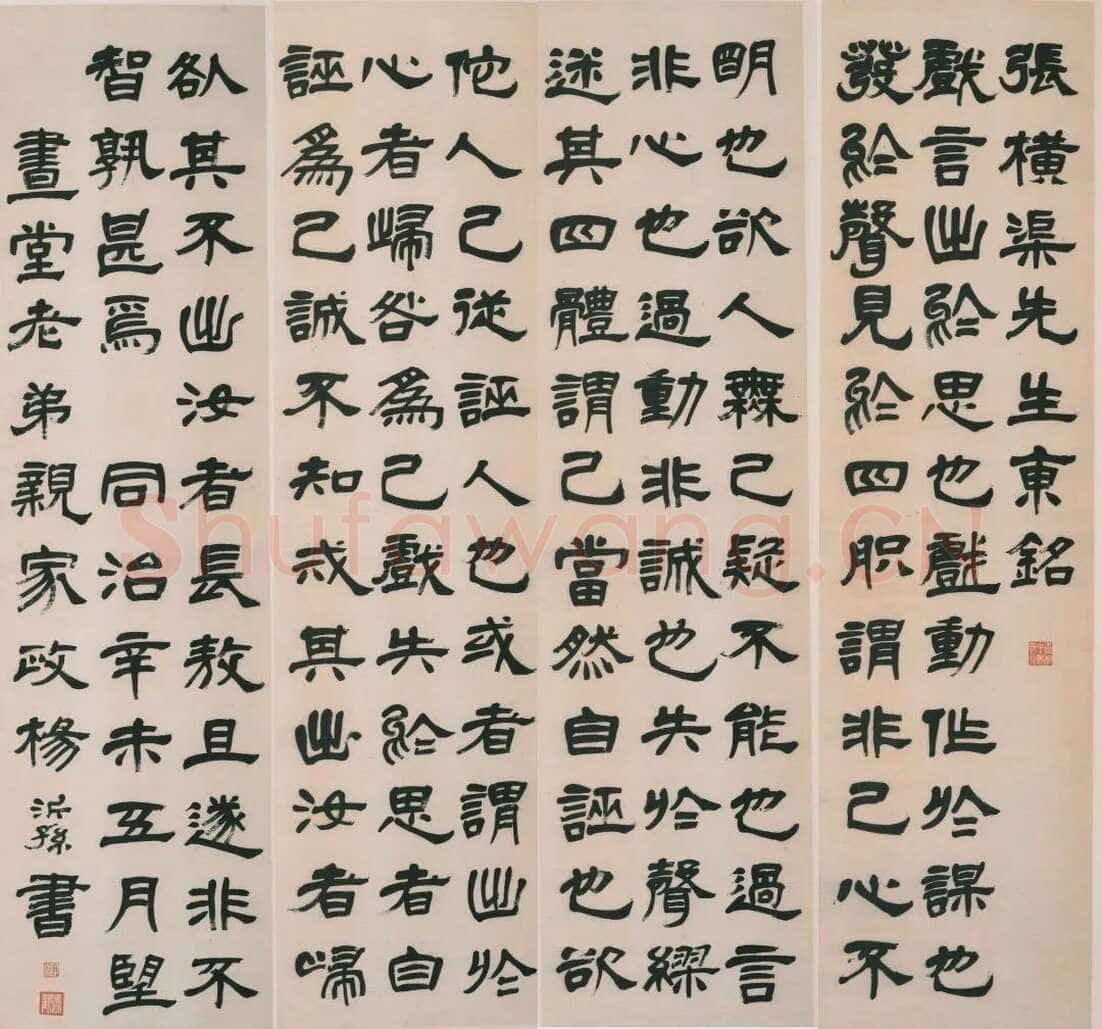 張橫渠先生東銘
戲言出於思也戲動作於謀也
發於聲見於四肢謂非己心不
明也欲人無己疑不能也過言
非心也過動非誠也失於聲繆
迷其四體謂己當然自誣也欲
佗人己從誣人也或者謂出於
心者歸咎為己戲失於思者自
誣為己誠不知戒其出汝者歸
咎其不出汝者長敖且遂非不
智孰甚焉 同治辛未五月望
晝堂老弟親家政楊沂孫書
Shufawang.CN